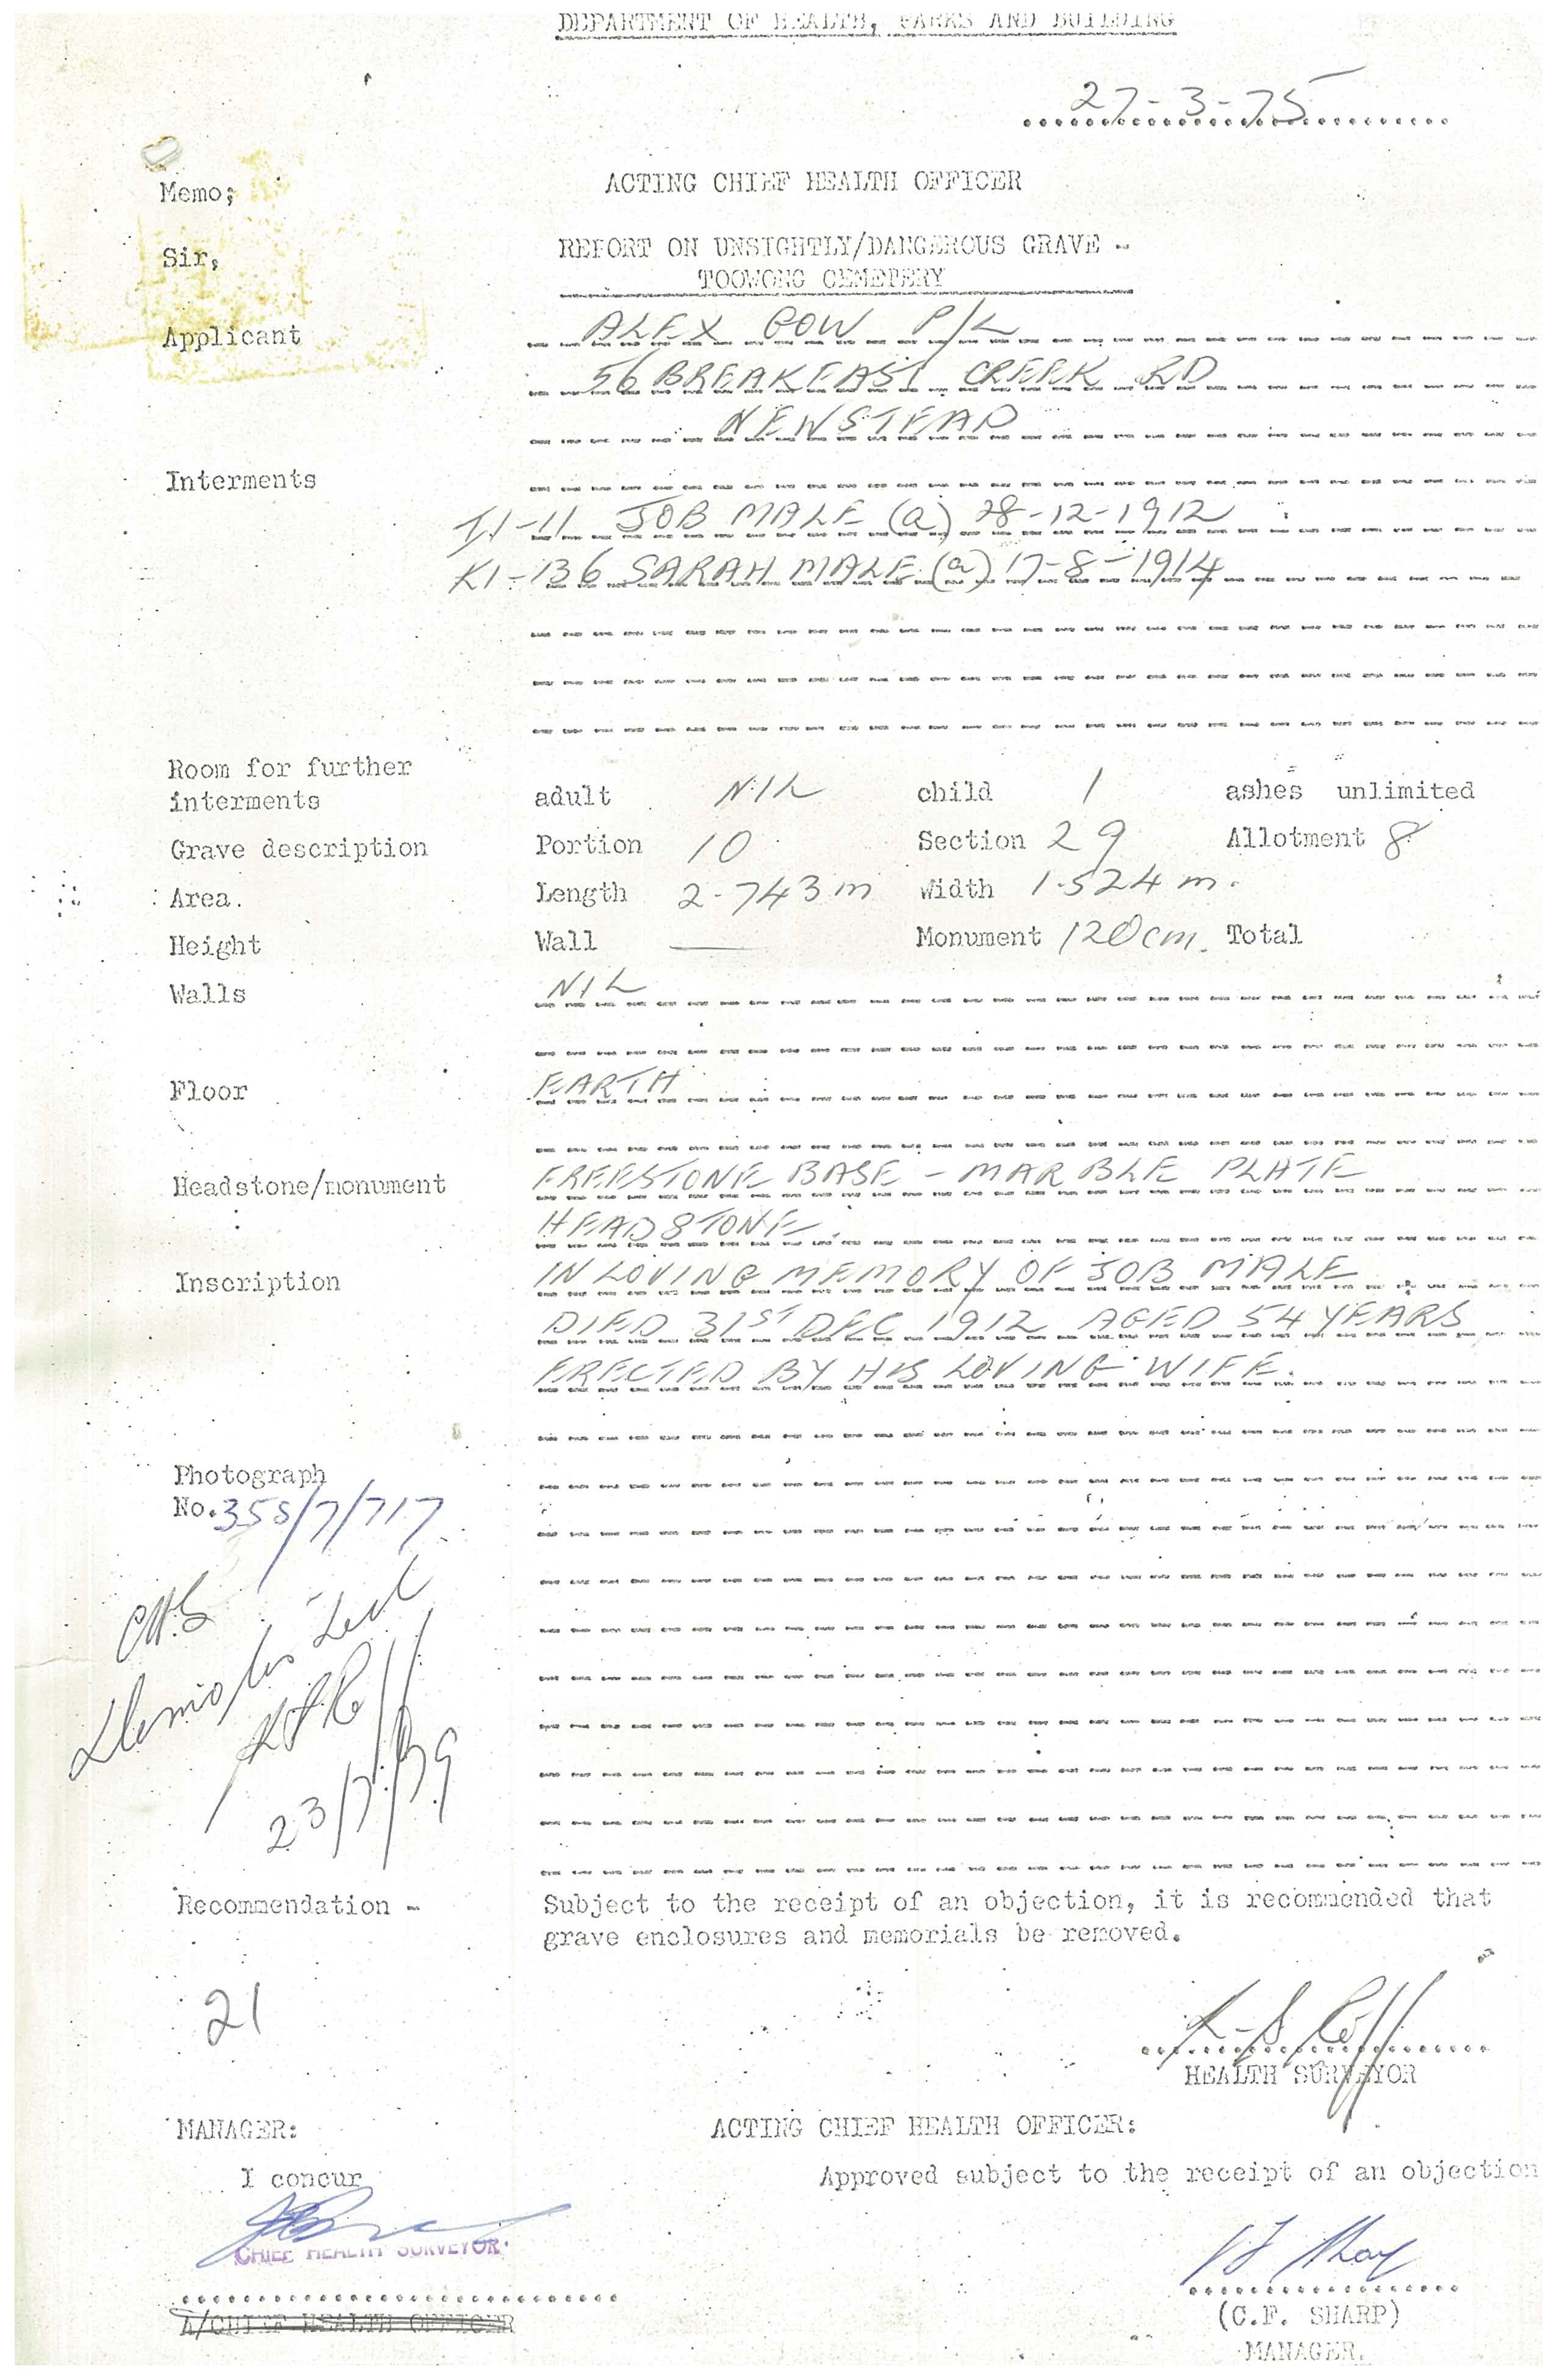 DEPARTMENT OF HEALTH, PARKS AND BUILDING
27-3-75
Memo; ACTING CHIEF HEALTH OFFICER
Sir, REPORT ON UNSIGHTLY/DANGEROUS GRAVE -
TOOWONG CEMETERY
Applicant ALEX GOW P/L
56 BREAKFAST CREEK RD
NEWSTEAD
Interments
11-11 JOB MALE (a) 28-12-1912
K1-136 SARAH MALE (a) 17-8-1914
Room for further
interments adult NIL child 1 ashes unlimited
Grave description Portion 10 Section 29 Allotment 8
Area. Length 2.743 m Width 1.524 m.
Height Wall — Monument 120cm. Total
Walls NIL
Floor EARTH
Headstone/monument FREESTONE BASE - MARBLE PLATE
HEADSTONE.
Inscription IN LOVING MEMORY OF JOB MALE
DIED 31ST DEC 1912 AGED 54 YEARS
ERECTED BY HIS LOVING WIFE.
Photograph
No. 358/7/717
CHS
23/7/79
Recommendation - Subject to the receipt of an objection, it is recommended that
grave enclosures and memorials be removed.
21
HEALTH SURVEYOR
MANAGER: ACTING CHIEF HEALTH OFFICER:
I concur Approved subject to the receipt of an objection
CHIEF HEALTH SURVEYOR
A/CHIEF HEALTH OFFICER
(C.F. SHARP)
MANAGER.